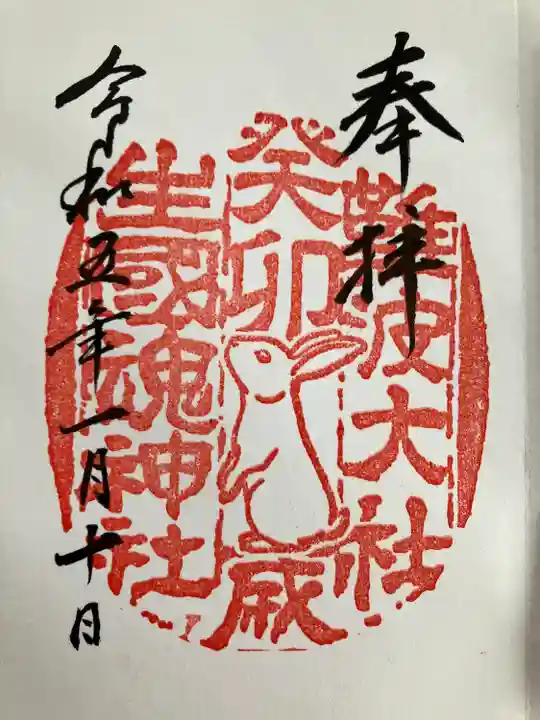 奉拝
難波大社
癸卯歳
生國魂神社
令和五年一月十日